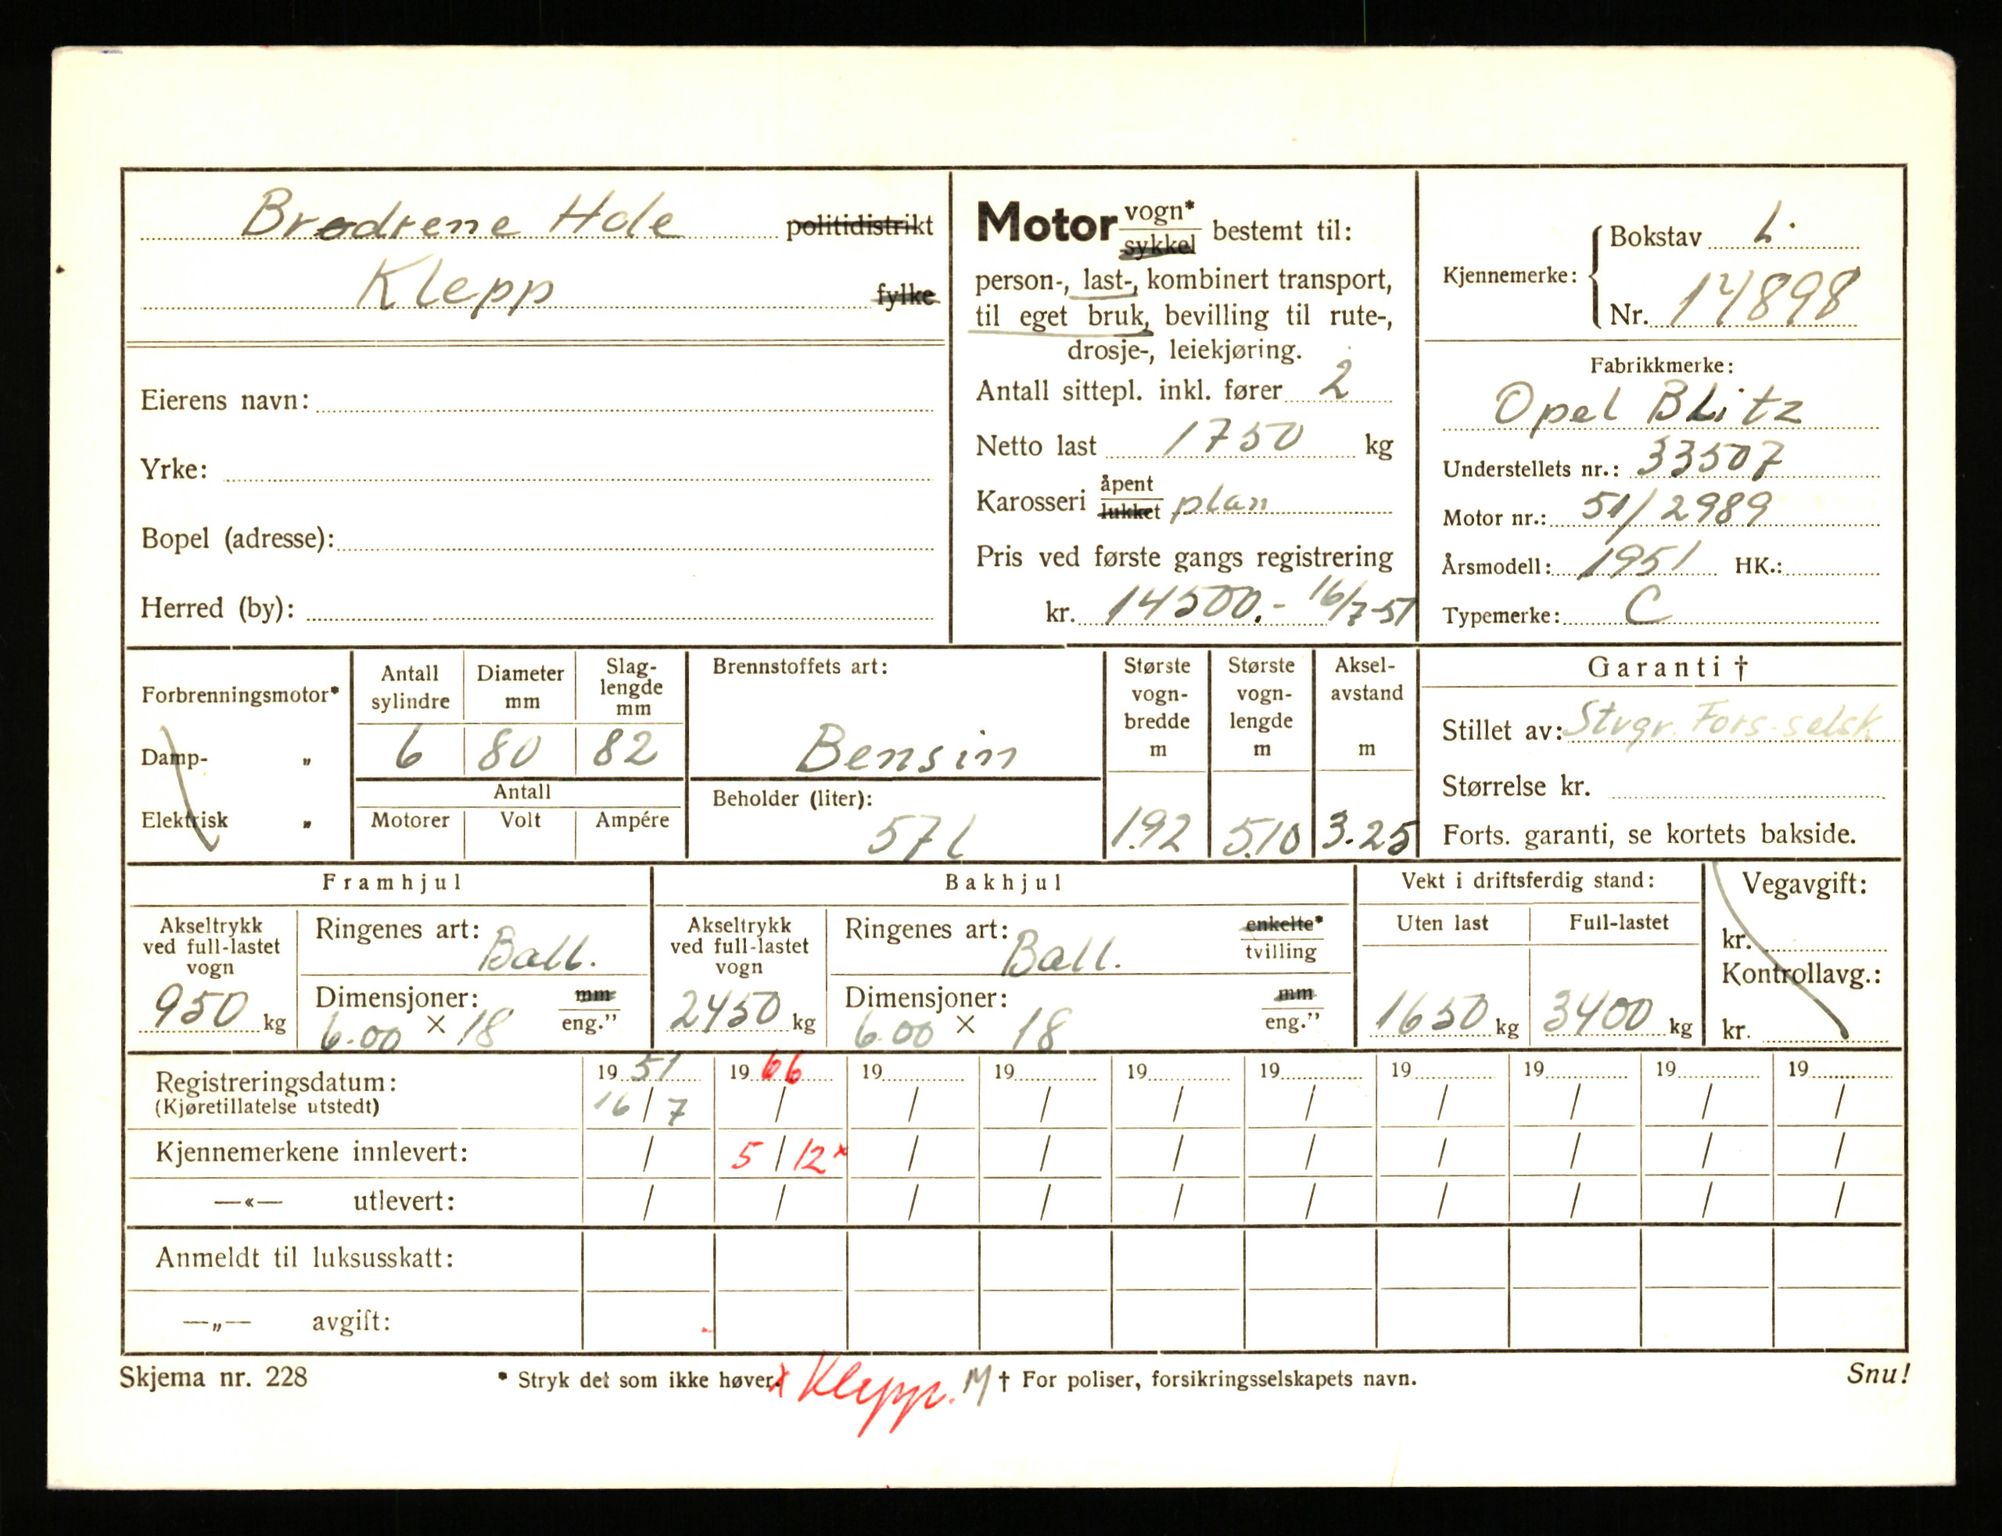 Brødrene Hole politidistrikt
Klepp fylke
Eierens navn:
Yrke:
Bopel (adresse):
Herred (by):
Motor vogn* sykkel bestemt til:
person-, last-, kombinert transport,
til eget bruk, bevilling til rute-,
drosje-, leiekjøring.
Antall sittepl. inkl. fører 2
Netto last 1750 kg
Karosseri åpent lukket plan
Pris ved første gangs registrering
kr. 14500.- 16/7-51
Kjennemerke: Bokstav L.
Nr. 14898
Fabrikkmerke:
Opel Blitz
Understellets nr.: 33507
Motor nr.: 51/2989
Årsmodell: 1951 HK.:
Typemerke: C
Forbrenningsmotor*
Damp- „
Elektrisk „
Antall sylindre Diameter mm Slag-lengde mm
6 80 82
Antall
Motorer Volt Ampére
Brennstoffets art:
Bensin
Beholder (liter):
57 l
Største vogn-bredde m Største vogn-lengde m Aksel-avstand m
1.92 5.10 3.25
Garanti †
Stillet av: Stvgr. Fors-selsk
Størrelse kr.
Forts. garanti, se kortets bakside.
Framhjul
Akseltrykk ved full-lastet vogn
950 kg
Ringenes art: Ball.
Dimensjoner: mm
6.00 × 18 eng."
Bakhjul
Akseltrykk ved full-lastet vogn
2450 kg
Ringenes art: Ball. enkelte* tvilling
Dimensjoner: mm
6.00 × 18 eng."
Vekt i driftsferdig stand:
Uten last Full-lastet
1650 kg 3400 kg
Vegavgift:
kr.
Kontrollavg.:
kr.
Registreringsdatum: 19 51 19 66 19 19 19 19 19 19 19 19
(Kjøretillatelse utstedt) 16/7 / / / / / / / / /
Kjennemerkene innlevert: / 5/12 x / / / / / / / /
—«— utlevert: / / / / / / / / / /
Anmeldt til luksusskatt:
—„— avgift:
Skjema nr. 228 * Stryk det som ikke høver. x Klepp. M † For poliser, forsikringsselskapets navn. Snu!